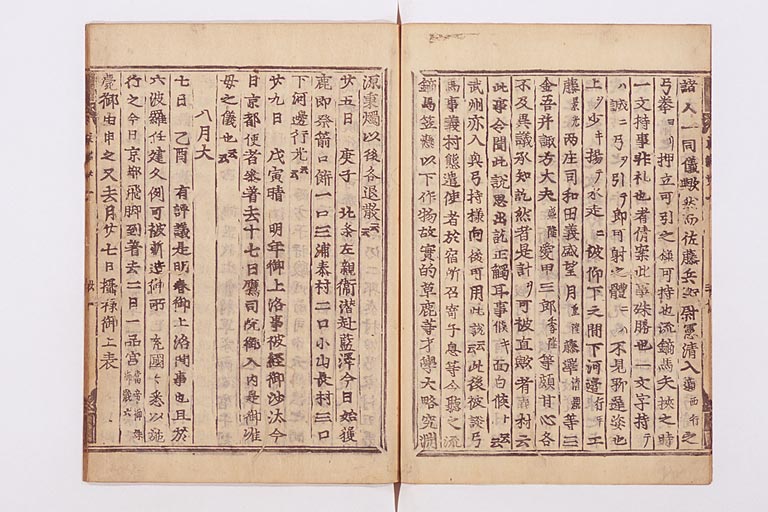 諸人一同儀歟然而佐藤兵衛尉憲清入道西行之
弓拳ヨリ押立可引之條可持也流鏑馬矢挾之時
一文持事非礼也者倩案此事殊勝也一文字持テ
ハ誠ニ弓ヲ引即可射之體ニ不見聊遲姿也
上ヲ少キ揚テ水走ニ被仰下之間下河邊行平工
藤景光両庄司和田義盛望月重隆藤澤清親等三
金吾并諏方大夫盛隆愛甲三郎季隆等頗甘心各
不及異議承知訖然者是計ヲ可被直歟者義村云
此事令聞此説思出訖正觸耳事候キ面白候云云
武州亦入興弓持様向後可用此説云云此後被談弓
馬事義村態遣使者於宿所召寄子息等令聽之流
鏑馬笠懸以下作物故實的草鹿等才學大略究淵
源秉燭以後各退散云云
廿五日 庚子 北条左親衛潜赴藍澤今日始獲
鹿即祭箭口餅一口三浦泰村二口小山長村三口
下河邊行光云云
廿九日 戊寅晴 明年御上洛事被經御沙汰今
日京都使者参著去十七日鷹司院御入内是御准
母之儀也云云
八月大
七日 乙酉 有評議是明春御上洛間事也且於
六波羅任建久例可被新造御所充國々悉以施
行之今日京都飛脚到著去二日一品宮當帝御姉御歳六
薨御由申之又去月廿七日攝禄御上表